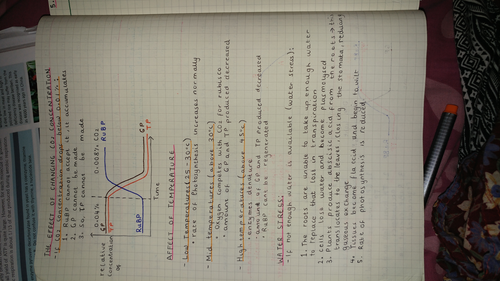 THE EFFECT OF CHANGING CO2 CONCENTRATION
If CO2 concentration drops below 0.01%:
1. RuBP cannot accept it, it accumulates
2. GP cannot be made
3. So, TP cannot be made
0.04% CO2
0.008% CO2
relative
concentration
GP
TP
RuBP
RuBP
GP
TP
Time
AFFECT OF TEMPERATURE
- Low temperatures (25-30°C)
• rate of photosynthesis increases normally
- Mid temperatures (above 30°C)
• Oxygen competes with CO2 for rubisco
• amounts of GP and TP produced decreased
- High temperatures (above 45°C)
• enzymes denature
• amounts of GP and TP produced decreased
• RuBP can't be regenerated
WATER STRESS:
If not enough water is available (water stress);
1. The roots are unable to take up enough water
to replace that loss in transpiration
2. Cells lose water and become plasmolysed
3. Plants produce abscisic acid from the roots →
translocates to the leaves, closing the stomata, reducing
gaseous exchange
4. Tissues become flaccid and begin to wilt
5. Rate of photosynthesis is reduced